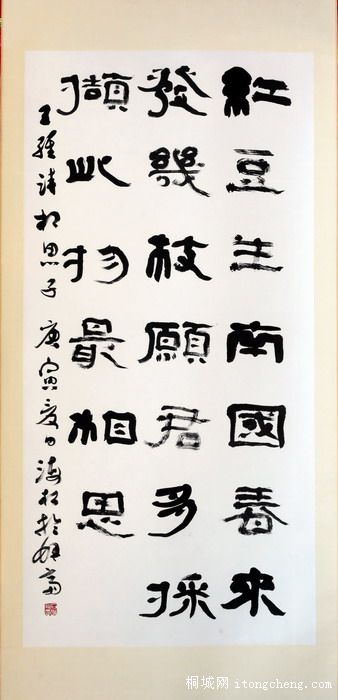 紅豆生南國春來
發幾枝願君多採
擷此物最相思
王維詩相思子庚寅夏日海松於
桐城网 itongcheng.com